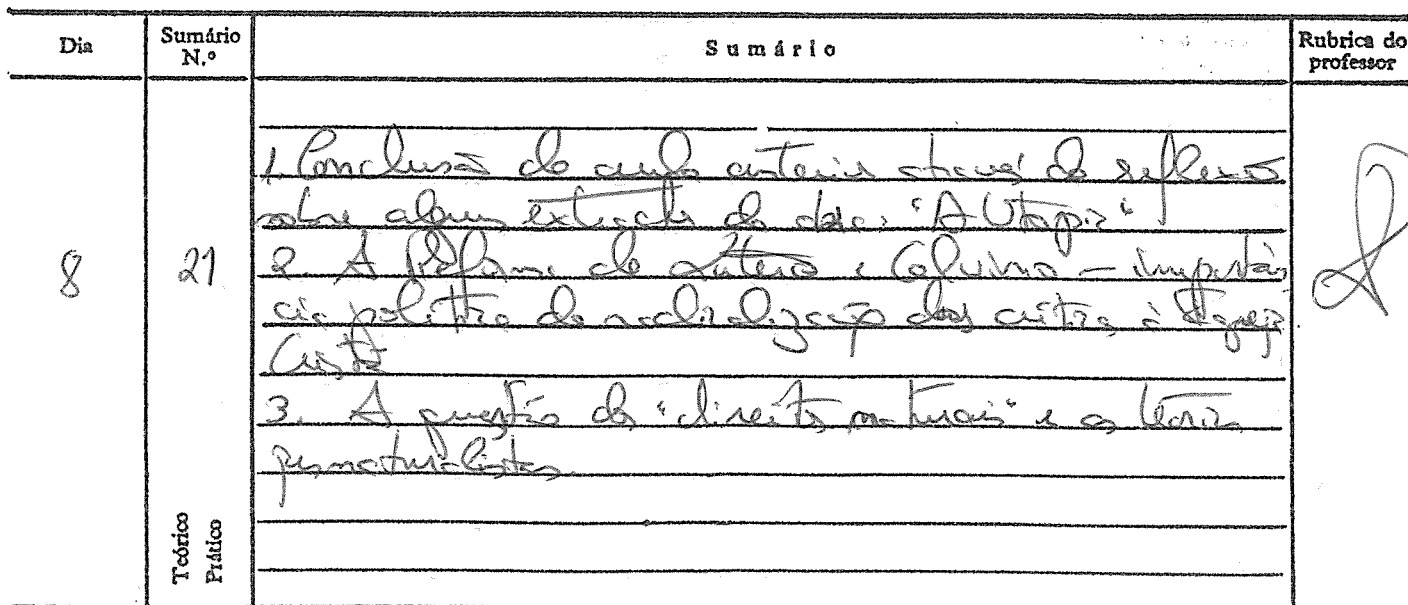 Dia
Sumário N.º
Sumário
Rubrica do professor
8
21
1. Conclusão da aula anterior através da reflexão
sobre alguns extractos da obra: "A Utopia"
2. A Reforma de Lutero e Calvino – importân
cia política da radicalização das críticas à Igreja
Cristã
3. A questão dos "direitos naturais" e as teorias
jusnaturalistas.
Teórico
Prático